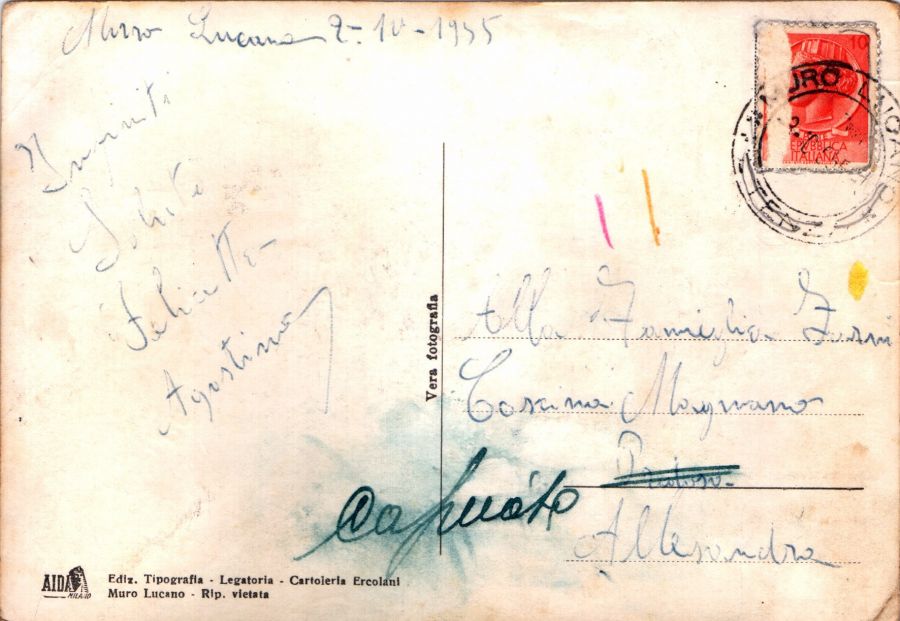 Muro Lucano 2-10-1955
Infiniti
Saluti
Felicetta
Agostino
10
REPUBBLICA
ITALIANA
MURO LUCANO
Vera fotografia
Alla Famiglia
Cascina Magnano
Allesandria
AIDA
MILANO
Ediz. Tipografia - Legatoria - Cartoleria Ercolani
Muro Lucano - Rip. vietata